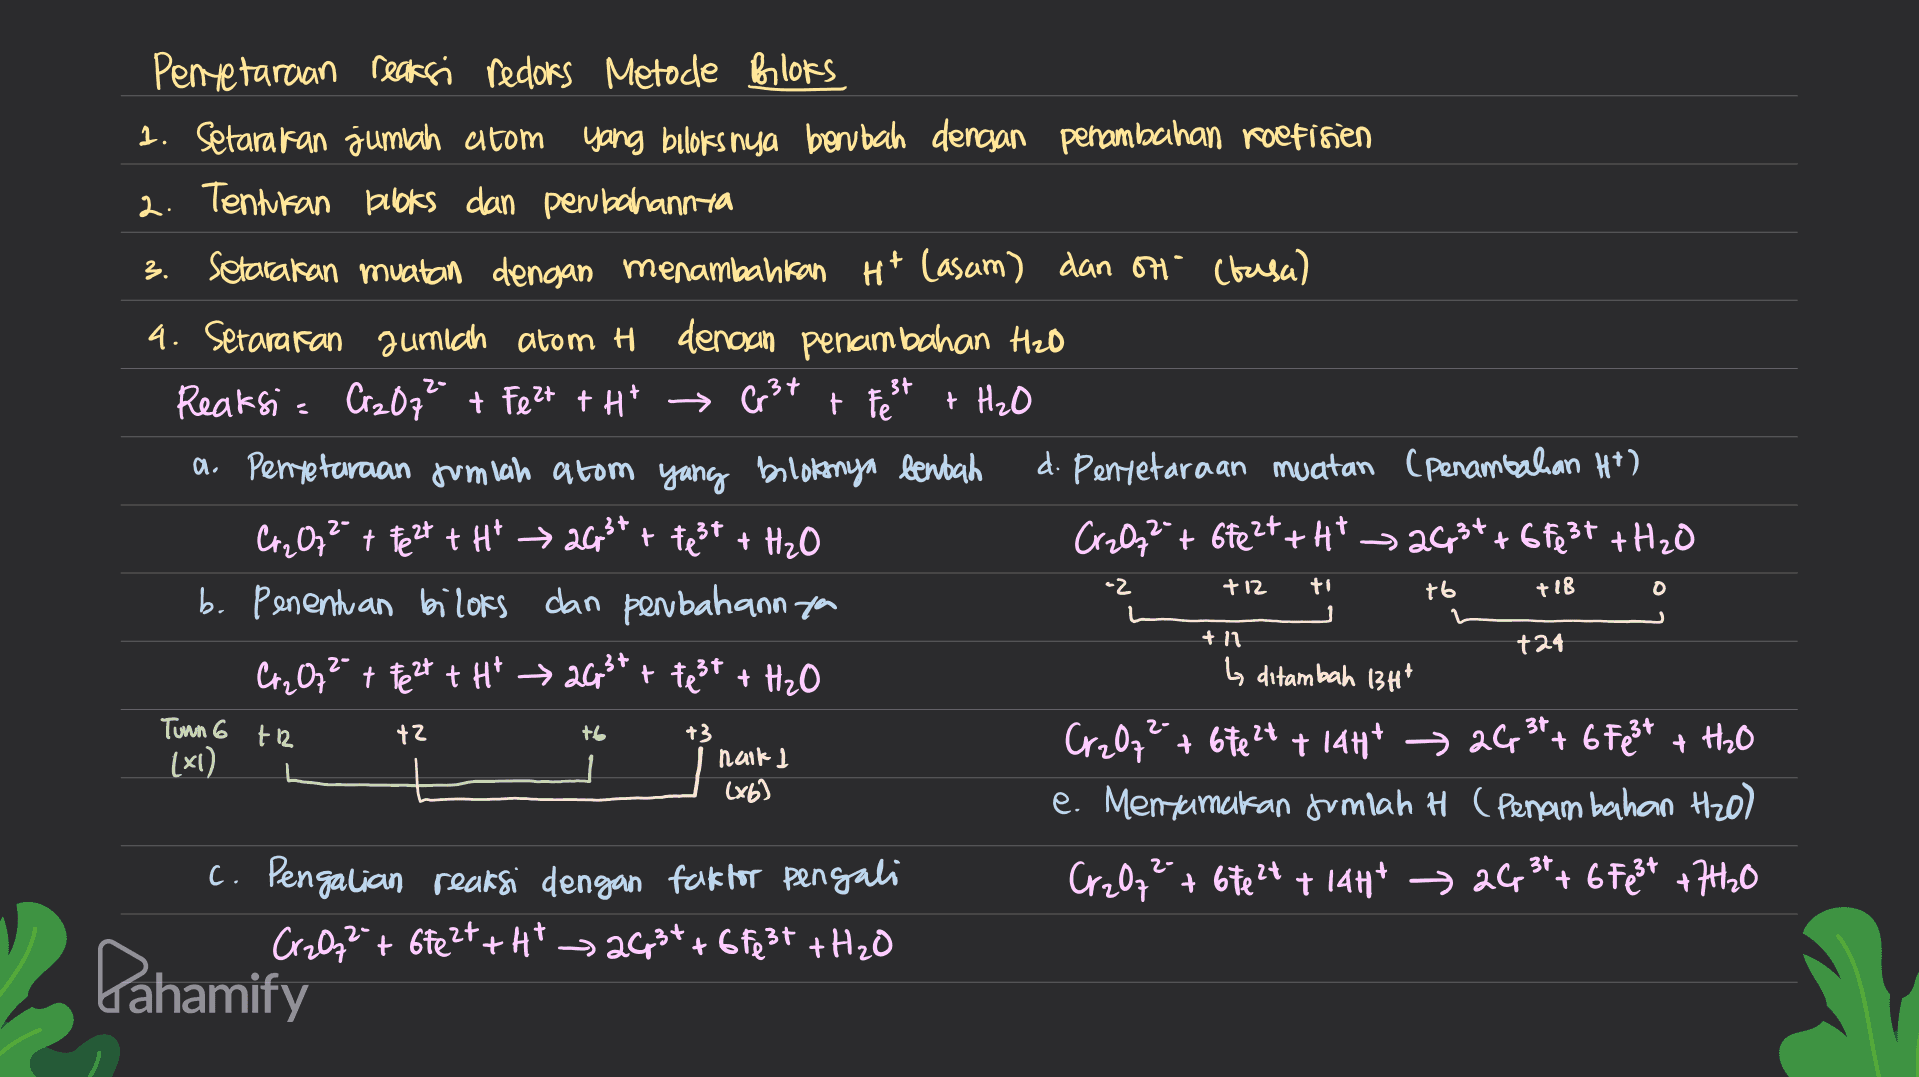 Penyetaraan reaksi redoks Metode Biloks
1. Setarakan jumlah atom yang biloksnya berubah dengan penambahan koefisien
2. Tentukan biloks dan perubahannya
3. Setarakan muatan dengan menambahkan H⁺ (asam) dan OH⁻ (basa)
4. Setarakan jumlah atom H dengan penambahan H₂O
Reaksi = Cr₂O₇²⁻ + Fe²⁺ + H⁺ → Cr³⁺ + Fe³⁺ + H₂O
a. Penyetaraan jumlah atom yang biloksnya berubah
Cr₂O₇²⁻ + Fe²⁺ + H⁺ → 2Cr³⁺ + Fe³⁺ + H₂O
b. Penentuan biloks dan perubahannya
Cr₂O₇²⁻ + Fe²⁺ + H⁺ → 2Cr³⁺ + Fe³⁺ + H₂O
Turun 6 +12 +2 +6 +3
(x1) naik 1
(x6)
c. Pengalian reaksi dengan faktor pengali
Cr₂O₇²⁻ + 6Fe²⁺ + H⁺ → 2Cr³⁺ + 6Fe³⁺ + H₂O
d. Penyetaraan muatan (penambahan H⁺)
Cr₂O₇²⁻ + 6Fe²⁺ + H⁺ → 2Cr³⁺ + 6Fe³⁺ + H₂O
-2 +12 +1 +6 +18 0
+11 +24
↳ ditambah 13H⁺
Cr₂O₇²⁻ + 6Fe²⁺ + 14H⁺ → 2Cr³⁺ + 6Fe³⁺ + H₂O
e. Menyamakan jumlah H (Penambahan H₂O)
Cr₂O₇²⁻ + 6Fe²⁺ + 14H⁺ → 2Cr³⁺ + 6Fe³⁺ + 7H₂O
Pahamify